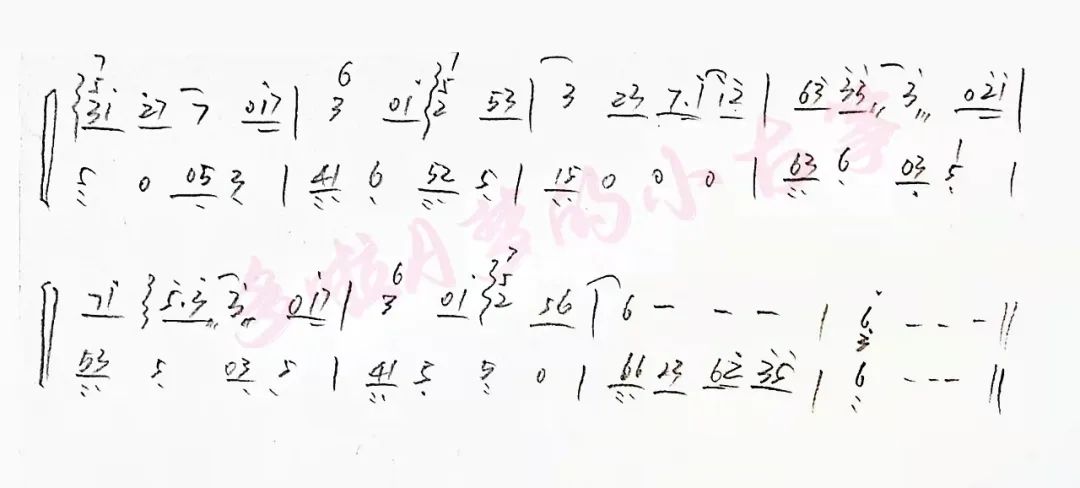 7 6 7
5 5
31 27 7 017 | 3 01 2 53 | 3 23 7.1 12 | 63 33 3 021 |
5 0 05 3 | 41 6 52 5 | 15 0 0 0 | 63 6 03 5 |
6 7
5
71 5.3 3 017 | 3 01 2 56 | 6 - - - | 6 - - - ||
3
53 5 03 5 | 41 5 5 0 | 66 23 62 35 | 6 - - - ||
多啦A梦的小古筝